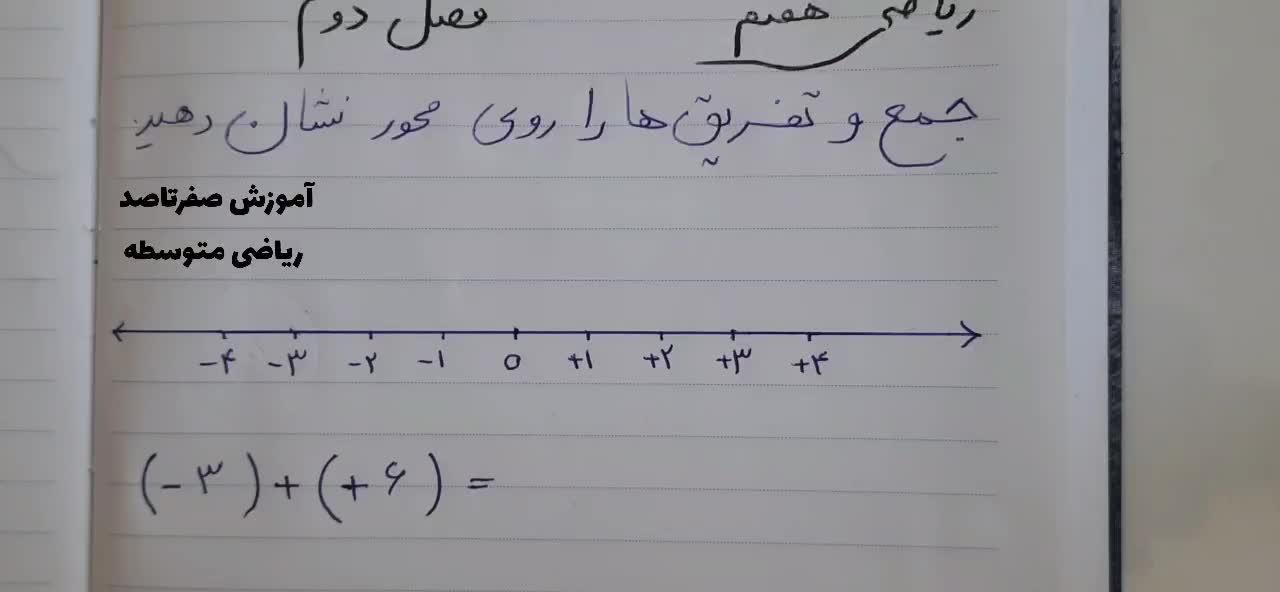 ریاضی هفتم فصل دوم
جمع و تفریق ها را روی محور نشان دهید
آموزش صفرتاصد
ریاضی متوسطه
-۴ -۳ -۲ -۱ ۰ +۱ +۲ +۳ +۴
(-۳) + (+۶) =